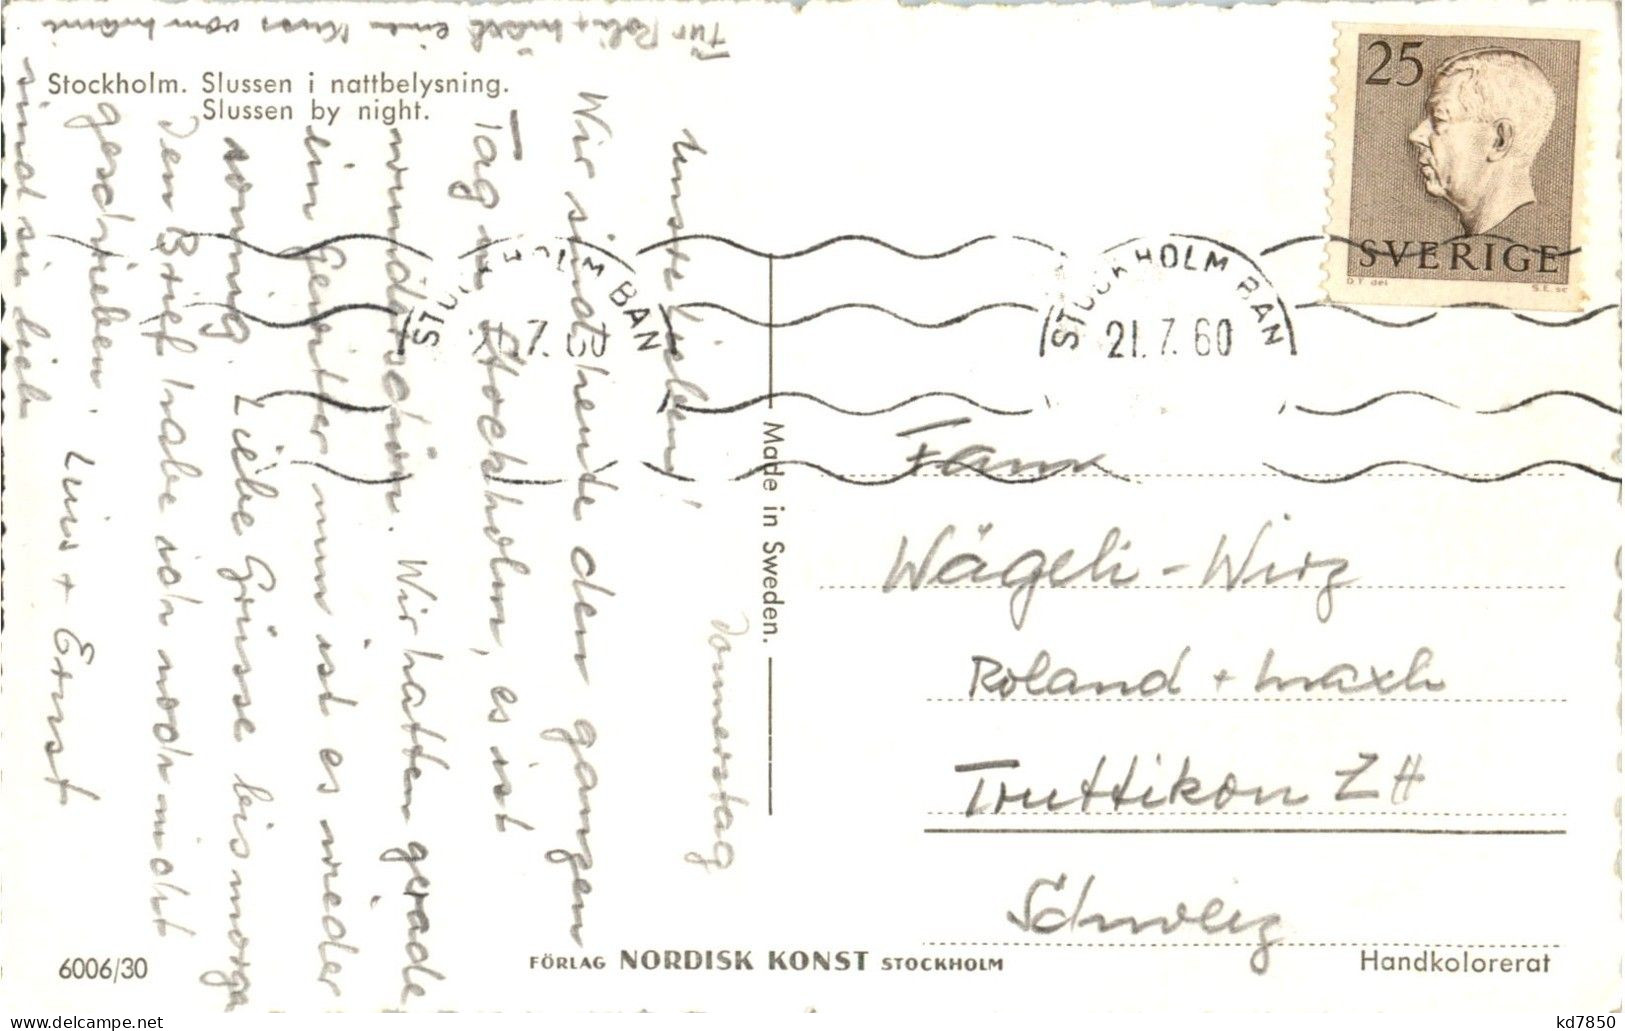 Stockholm. Slussen i nattbelysning.
Slussen by night.
Für Roli + Maxli einen Kuss vom Mami
Donnerstag
Unsre Lieben!
Wir sind heute den ganzen
Tag in Stockholm, es ist
wunderschön. Wir hatten gerade
ein Gewitter nun ist es wieder
sonnig. Liebe Grüsse bis morga
Den Brief habe ich noch nicht
geschrieben. Luis + Ernst
sind sie lieb
25
SVERIGE
D.T. del
S.E. sc
STOCKHOLM BAN
21.7.60
STOCKHOLM BAN
21.7.60
Made in Sweden.
Fam
Wägeli-Wirz
Roland + Maxli
Truttikon ZH
Schweiz
6006/30
FÖRLAG NORDISK KONST STOCKHOLM
Handkolorerat
delcampe.net
kd7850